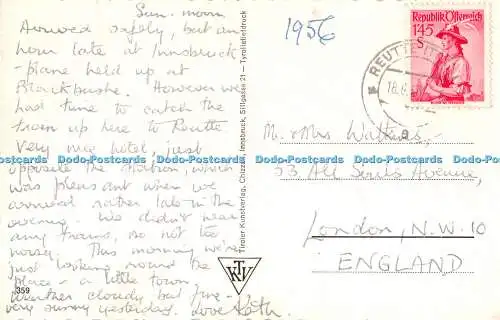 Sun. morn
Arrived safely, but an
hour late at Innsbruck
- plane held up at
Blackbushe. However we
had time to catch the
train up here to Reutte
Very nice hotel, just
opposite the station, which
was pleasant when we
arrived rather late in the
evening. We didn't hear
any trains, so not too
noisy. This morning we're
just looking round the
place - a little town.
Weather cloudy but fine -
very sunny yesterday. Love Kath.
359
Tiroler Kunstverlag, Chizzali, Innsbruck, Sillgasse 21 — Tyroliatiefdruck
KTV
1956
Republik Österreich
1'45
REUTTE
18.
Mr & Mrs Watkins,
53 All Souls Avenue,
London, N.W. 10
ENGLAND
Dodo-Postcards Dodo-Postcards Dodo-Postcards Dodo-Postcards Dodo-Postcards